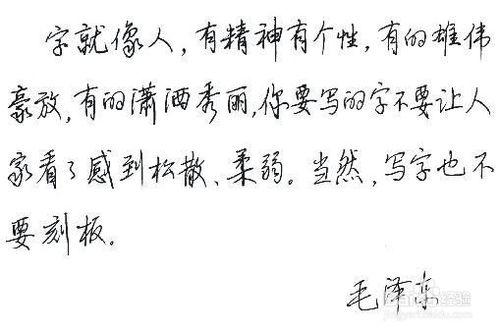 字就像人，有精神有个性，有的雄伟
豪放，有的潇洒秀丽，你要写的字不要让人
家看了感到松散、柔弱。当然，写字也不
要刻板。
毛泽东